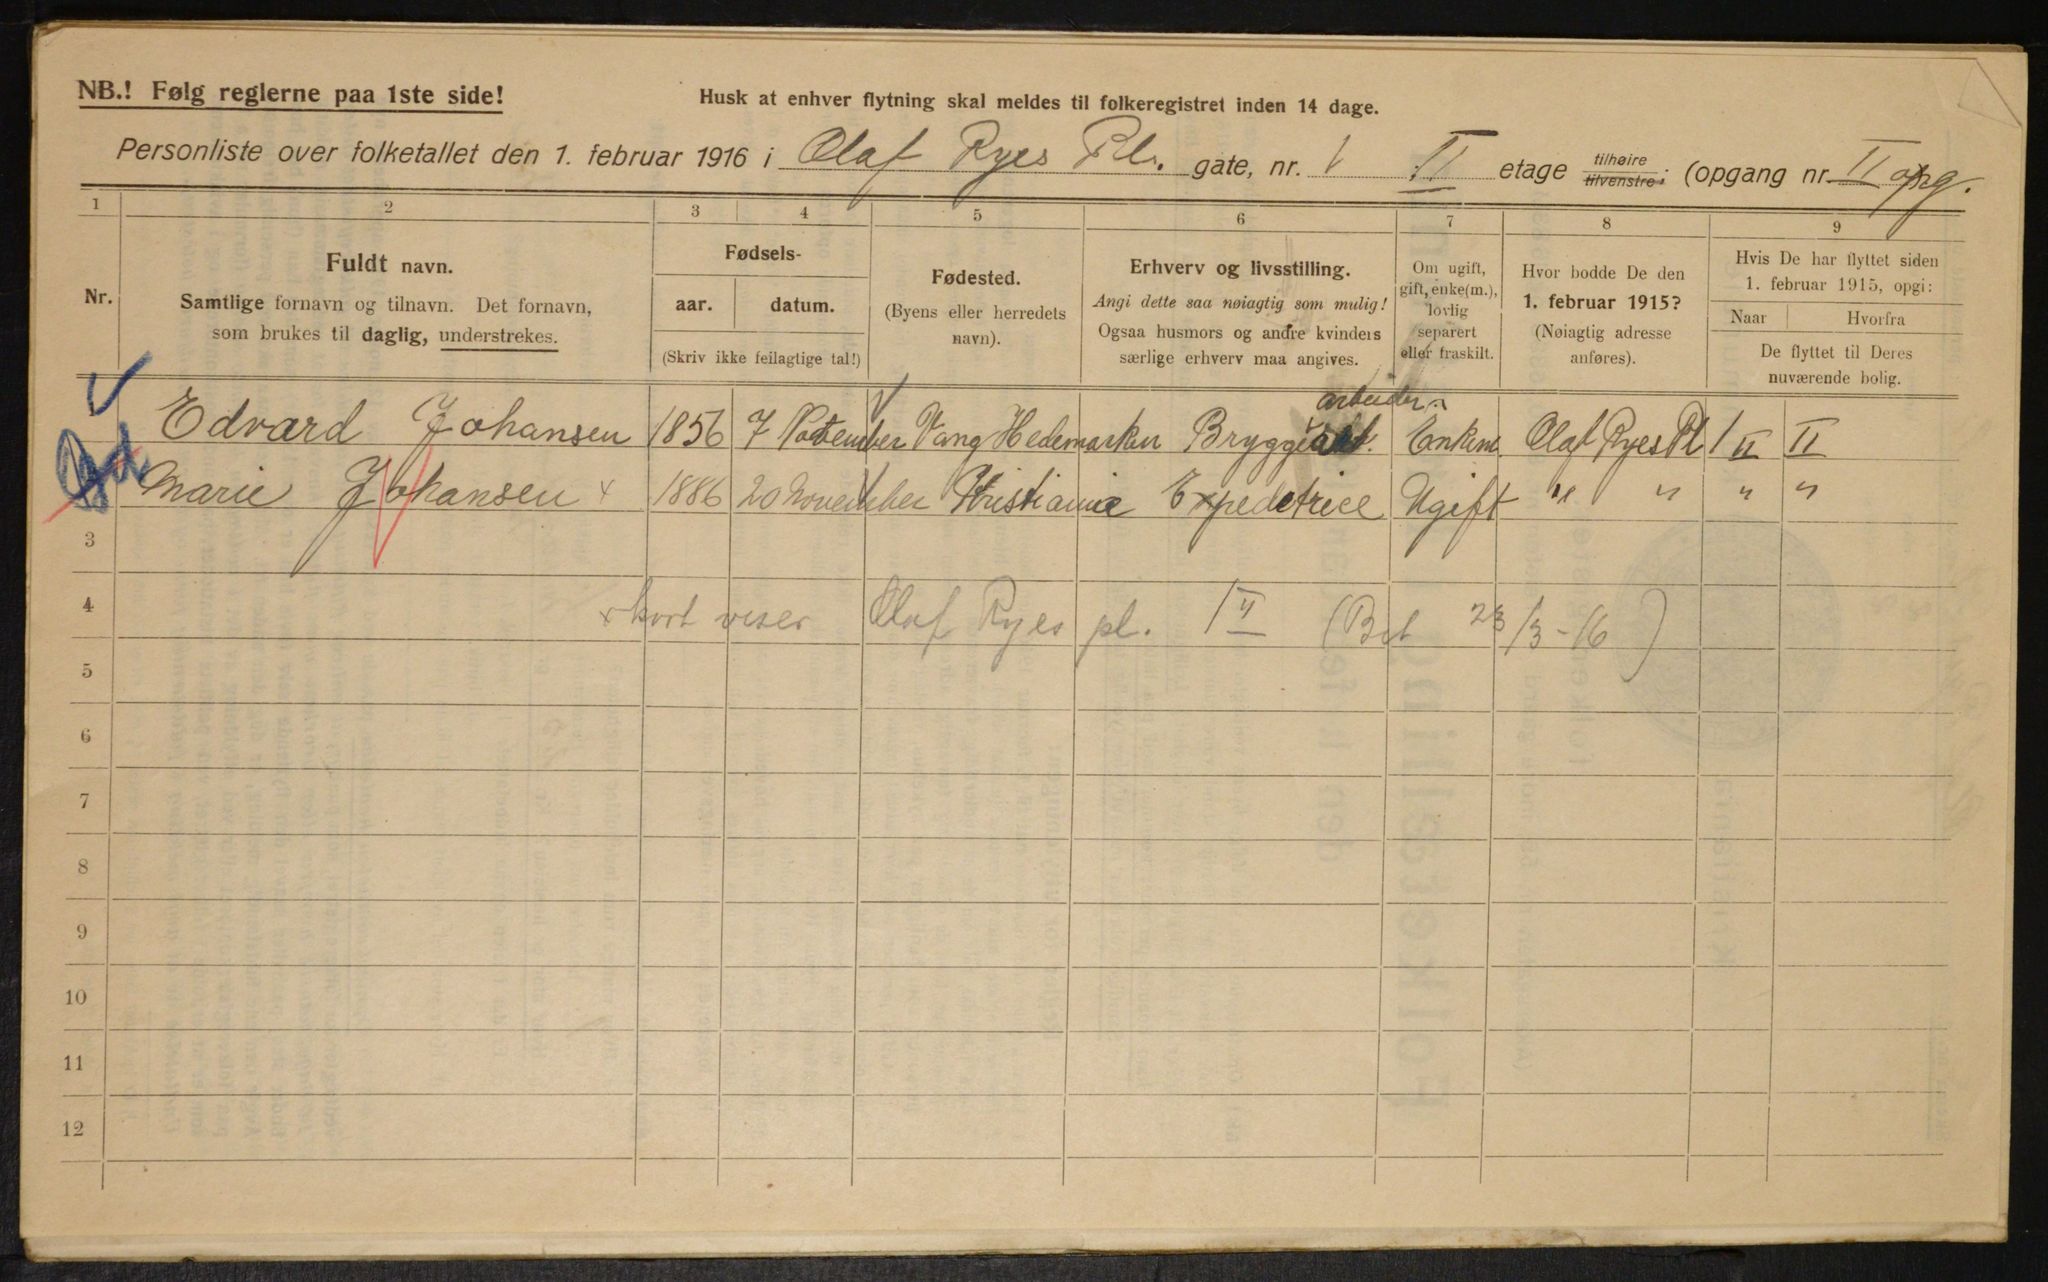 NB.! Følg reglerne paa 1ste side!
Husk at enhver flytning skal meldes til folkeregistret inden 14 dage.
Personliste over folketallet den 1. februar 1916 i Olaf Ryes Pl. gate, nr. 1 II etage tilhøire tilvenstre; (opgang nr. II opg.
1 2 3 4 5 6 7 8 9
Nr.
Fuldt navn.
Samtlige fornavn og tilnavn. Det fornavn,
som brukes til daglig, understrekes.
Fødsels-
aar. datum.
(Skriv ikke feilagtige tal!)
Fødested.
(Byens eller herredets
navn).
Erhverv og livsstilling.
Angi dette saa nøiagtig som mulig!
Ogsaa husmors og andre kvinders
særlige erhverv maa angives.
Om ugift,
gift, enke(m.),
lovlig
separert
eller fraskilt.
Hvor bodde De den
1. februar 1915?
(Nøiagtig adresse
anføres).
Hvis De har flyttet siden
1. februar 1915, opgi:
Naar Hvorfra
De flyttet til Deres
nuværende bolig.
arbeider
Edvard Johansen 1856 7 November Vang Hedemarken Bryggeriarb. Enkem. Olaf Ryes Pl 1 II II
Marie Johansen x 1886 20 November Kristiania Expedetrice Ugift " " " "
3
4 x kort viser Olaf Ryes pl. 1 II (Bet 23/3-16)
5
6
7
8
9
10
11
12